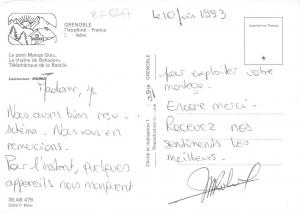 RF 517
GRENOBLE
Dauphiné - France
Isère
Le pont Marius Gon
La chaîne de Belledonne
Téléphérique de la Bastille
Madame,
Nous avons bien reçu
schéma. Nous vous en
remercions.
Pour l'instant, quelques
appareils nous manquent
38 AB 479
GRENOBLE
Cliché et réalisation
Le 10 juin 1993
Imprimé en France
pour exploiter votre
montage.
Encore merci.
Recevez nos
sentiments les
meilleurs.